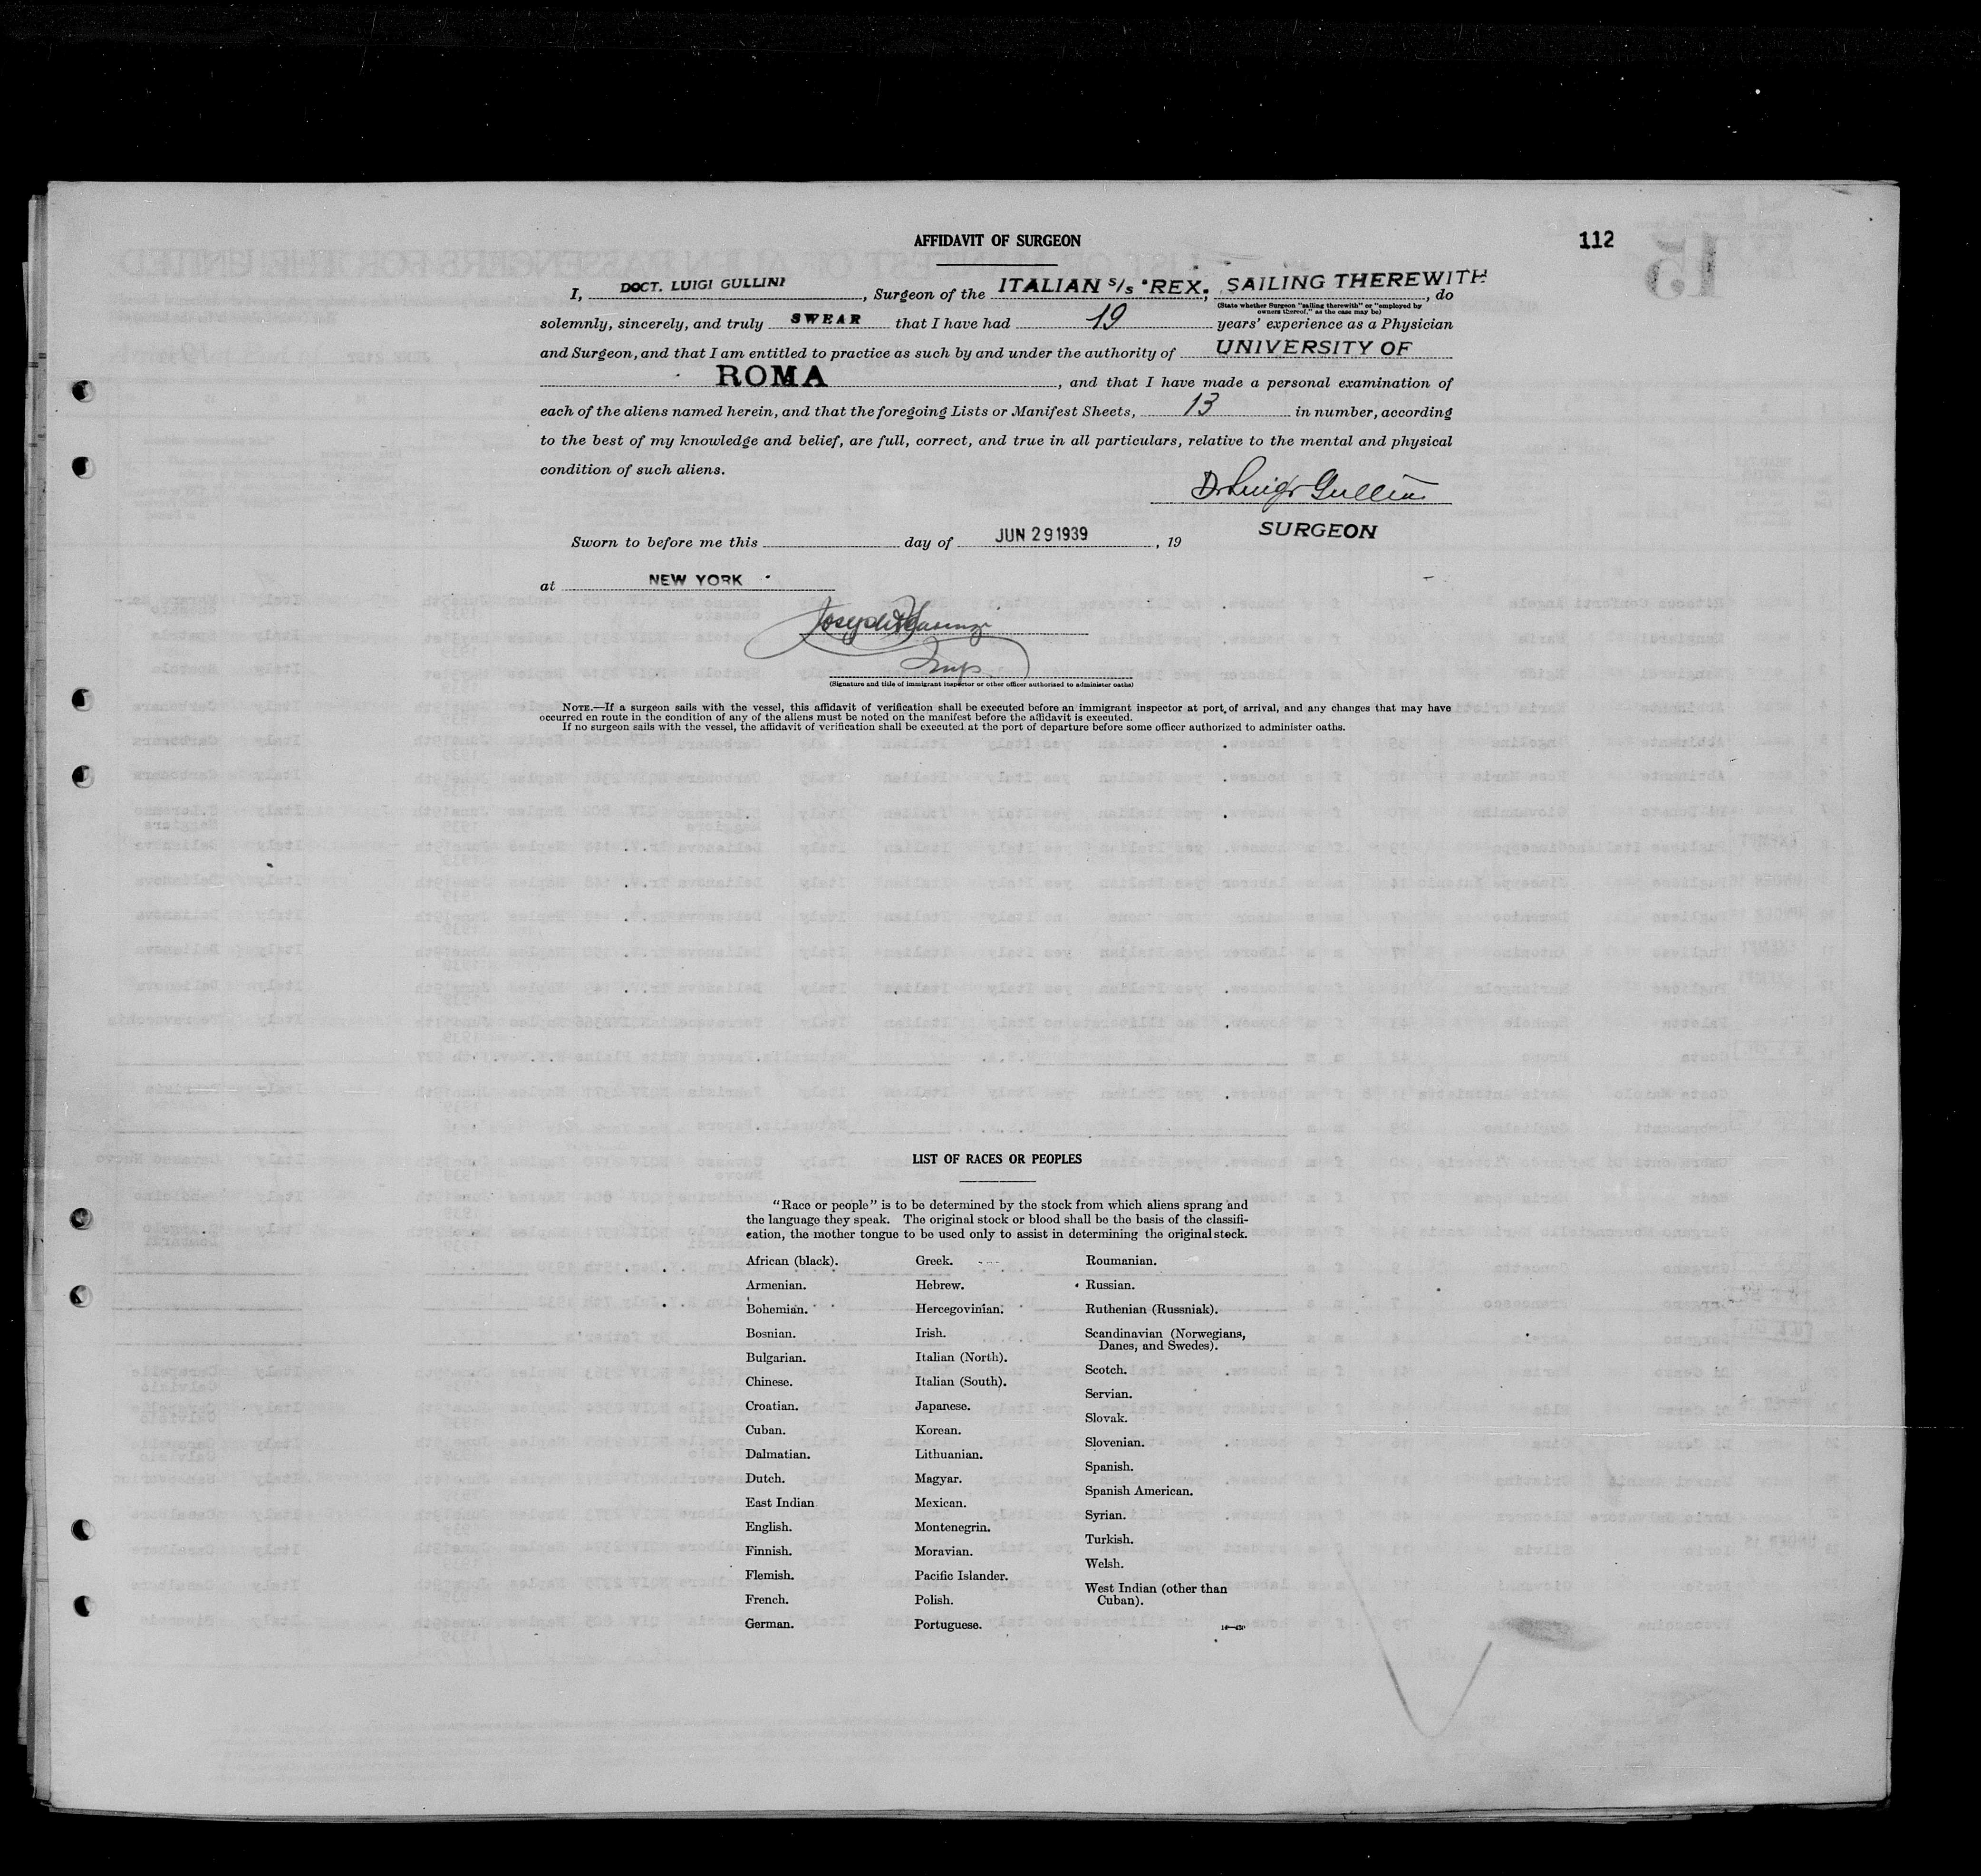 112
AFFIDAVIT OF SURGEON
I, DOCT. LUIGI GULLINI, Surgeon of the ITALIAN S/S "REX", SAILING THEREWITH, do
(State whether Surgeon "sailing therewith" or "employed by
owners thereof," as the case may be)
solemnly, sincerely, and truly SWEAR that I have had 19 years' experience as a Physician
and Surgeon, and that I am entitled to practice as such by and under the authority of UNIVERSITY OF
ROMA, and that I have made a personal examination of
each of the aliens named herein, and that the foregoing Lists or Manifest Sheets, 13 in number, according
to the best of my knowledge and belief, are full, correct, and true in all particulars, relative to the mental and physical
condition of such aliens.
Dr Luigi Gullini
SURGEON
Sworn to before me this day of JUN 29 1939, 19
at NEW YORK
Insp
(Signature and title of immigrant inspector or other officer authorized to administer oaths)
NOTE.—If a surgeon sails with the vessel, this affidavit of verification shall be executed before an immigrant inspector at port of arrival, and any changes that may have
occurred en route in the condition of any of the aliens must be noted on the manifest before the affidavit is executed.
If no surgeon sails with the vessel, the affidavit of verification shall be executed at the port of departure before some officer authorized to administer oaths.
LIST OF RACES OR PEOPLES
"Race or people" is to be determined by the stock from which aliens sprang and
the language they speak. The original stock or blood shall be the basis of the classifi-
cation, the mother tongue to be used only to assist in determining the original stock.
African (black).
Armenian.
Bohemian.
Bosnian.
Bulgarian.
Chinese.
Croatian.
Cuban.
Dalmatian.
Dutch.
East Indian
English.
Finnish.
Flemish.
French.
German.
Greek.
Hebrew.
Hercegovinian.
Irish.
Italian (North).
Italian (South).
Japanese.
Korean.
Lithuanian.
Magyar.
Mexican.
Montenegrin.
Moravian.
Pacific Islander.
Polish.
Portuguese.
Roumanian.
Russian.
Ruthenian (Russniak).
Scandinavian (Norwegians,
Danes, and Swedes).
Scotch.
Servian.
Slovak.
Slovenian.
Spanish.
Spanish American.
Syrian.
Turkish.
Welsh.
West Indian (other than
Cuban).